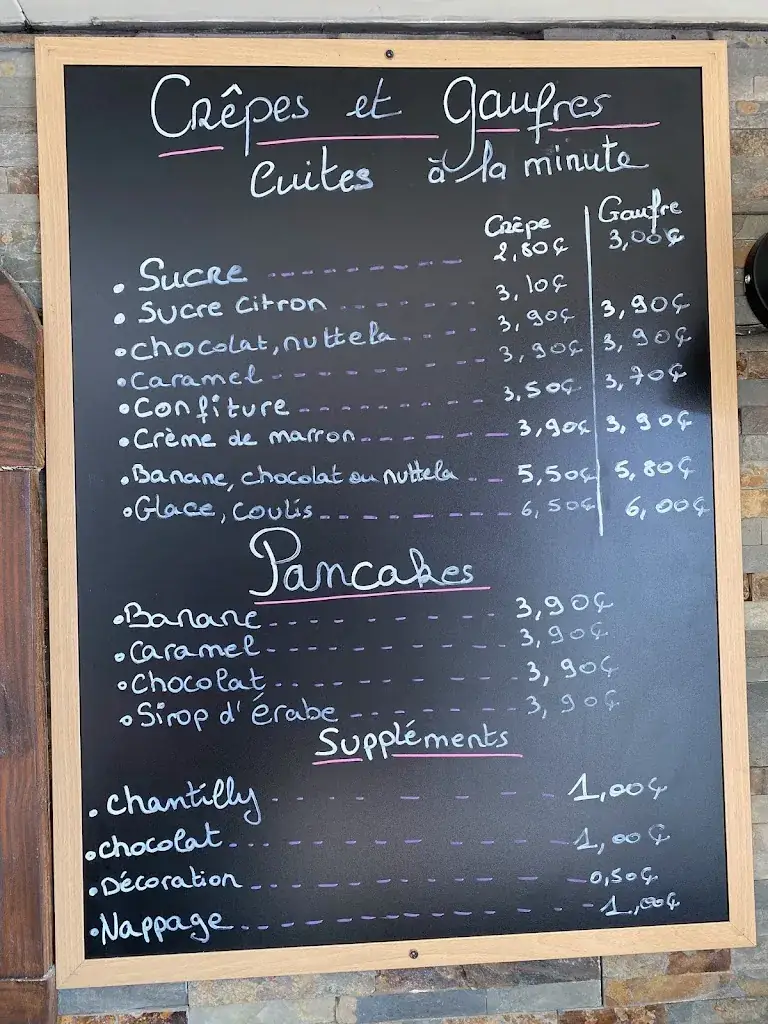 Crêpes et Gaufres
Cuites à la minute
Crêpe Gaufre
• Sucre 2,80€ 3,00€
• Sucre citron 3,10€
• chocolat, nuttela 3,90€ 3,90€
• Caramel 3,90€ 3,90€
• Confiture 3,50€ 3,70€
• Crème de marron 3,90€ 3,90€
• Banane, chocolat ou nuttela 5,50€ 5,80€
• Glace, coulis 6,50€ 6,00€
Pancakes
• Banane 3,90€
• Caramel 3,90€
• Chocolat 3,90€
• Sirop d'érabe 3,90€
Suppléments
• chantilly 1,00€
• chocolat 1,00€
• Décoration 0,50€
• Nappage 1,00€